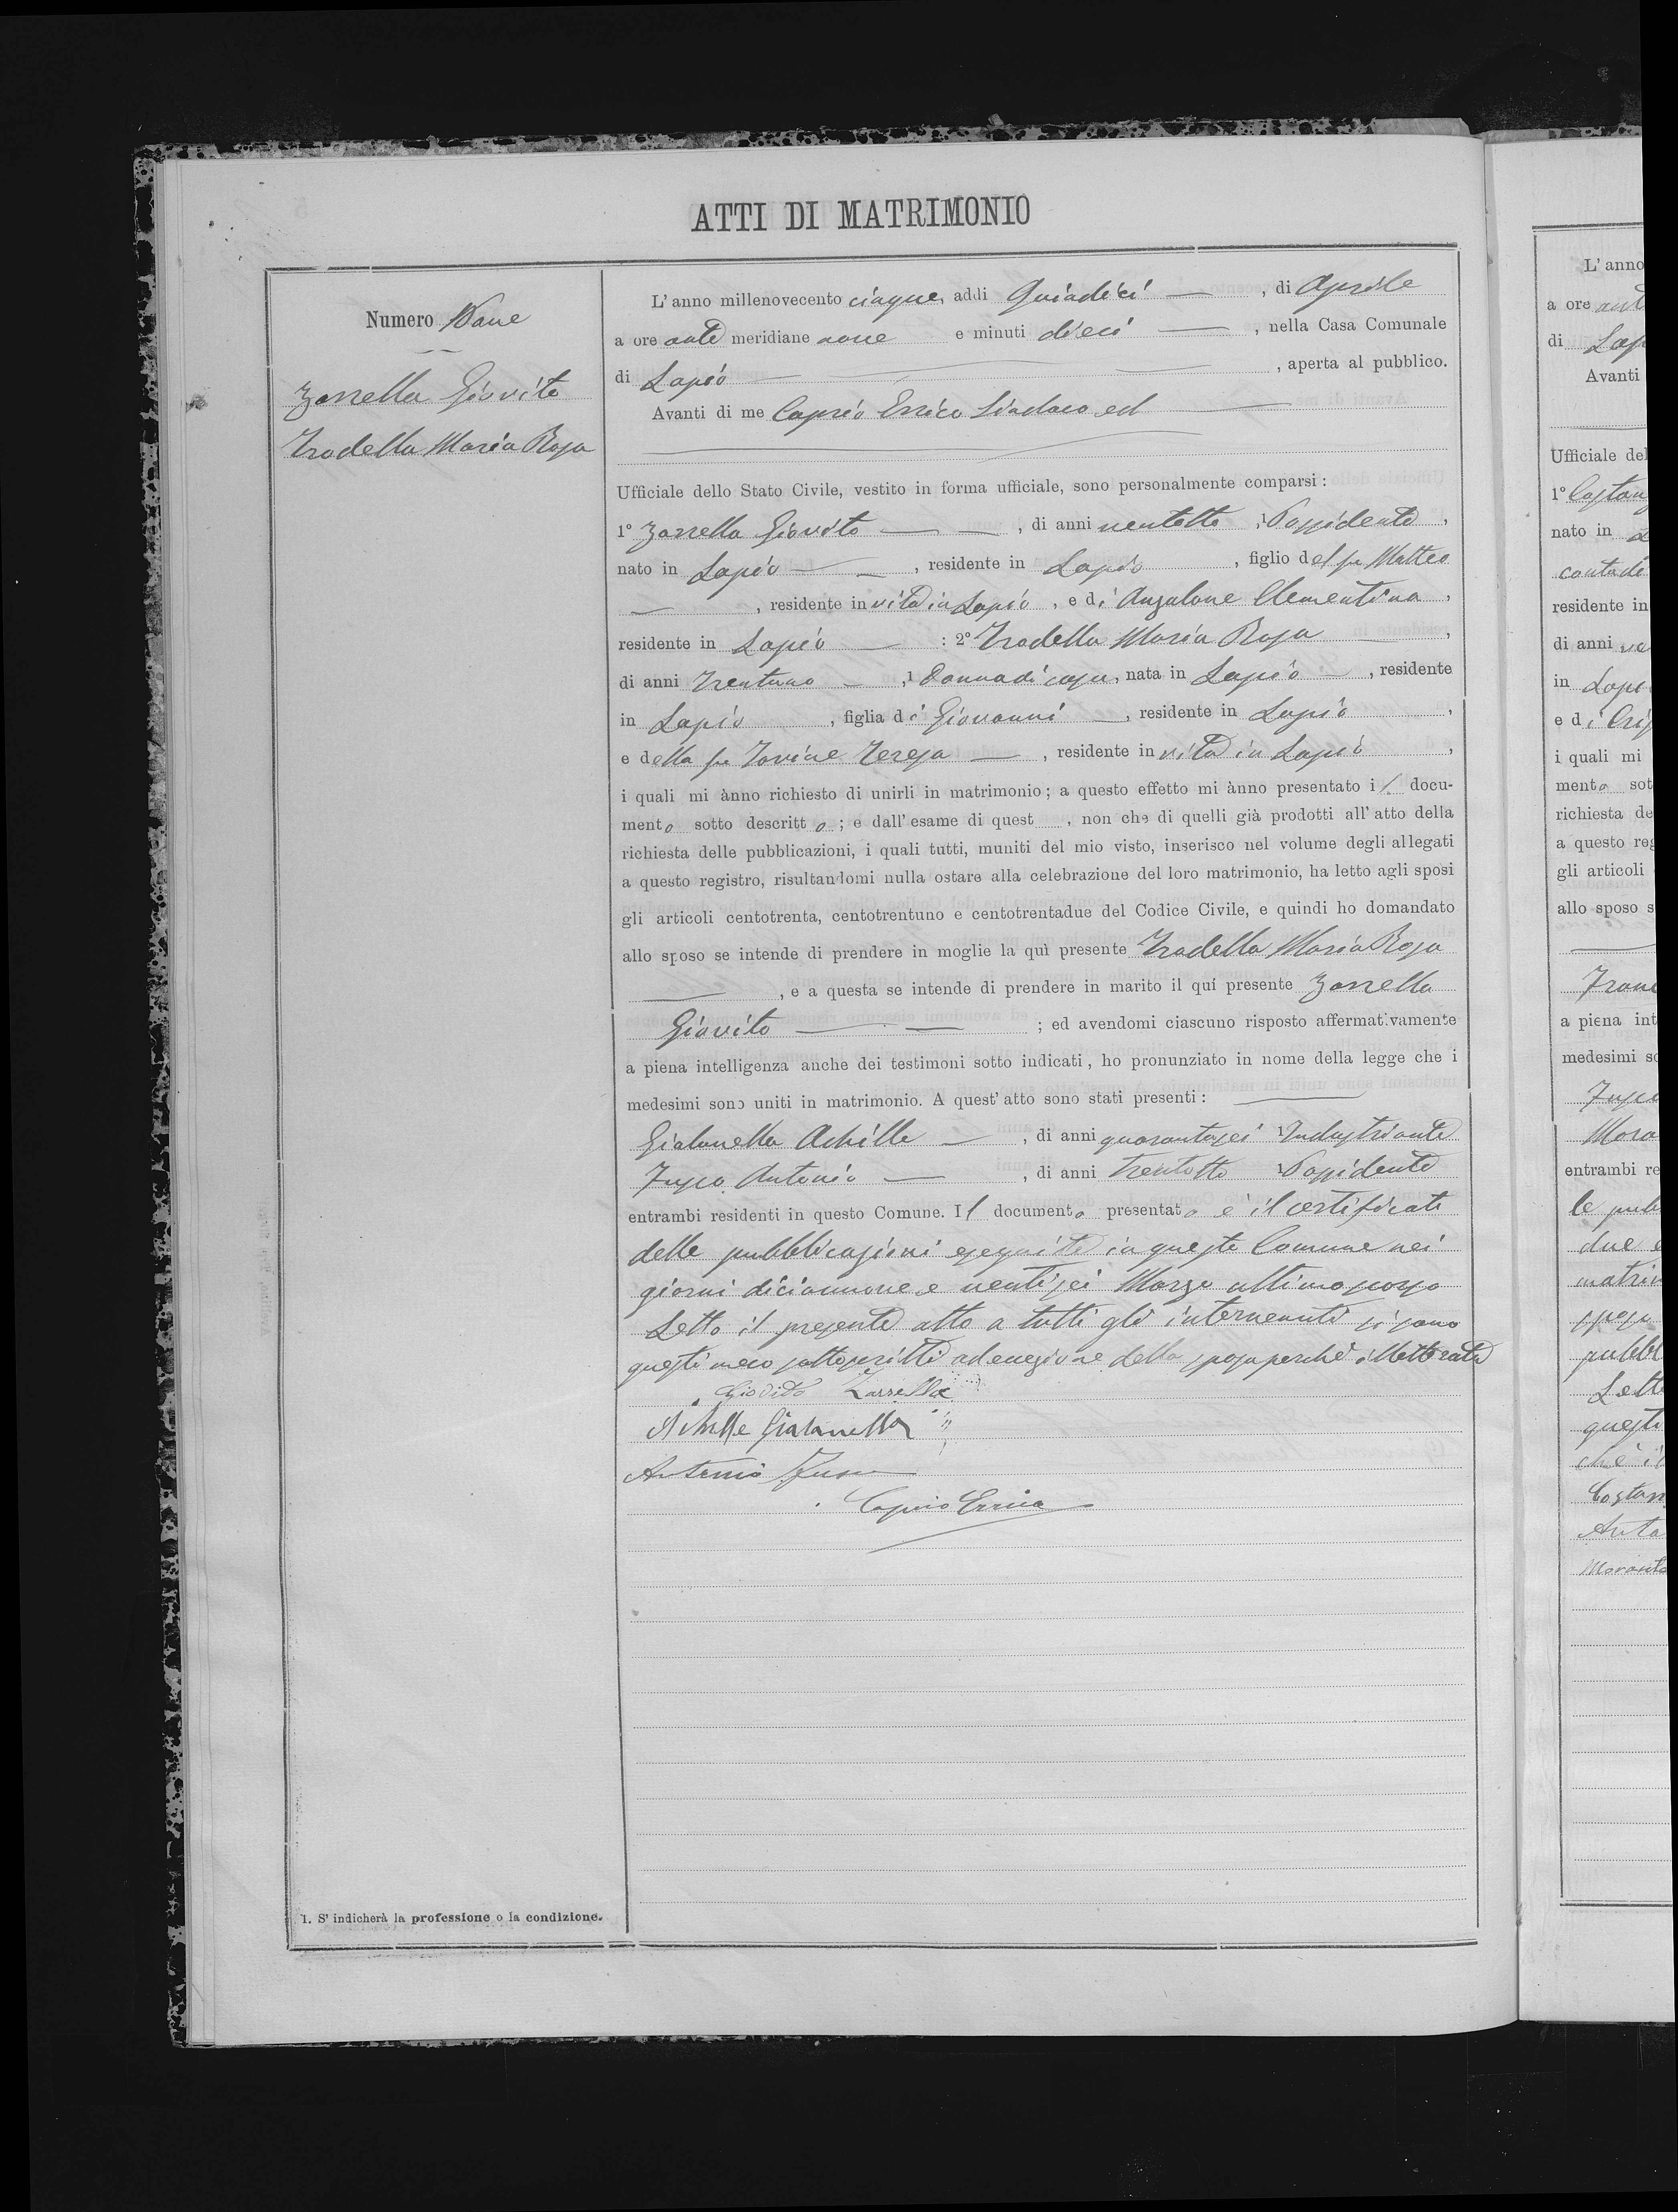 ATTI DI MATRIMONIO
Numero Nove
Zarrella Giovito
Tradella Maria Rosa
L'anno millenovecento cinque, addi Quindici, di Aprile
a ore anti meridiane nove e minuti dieci, nella Casa Comunale
di Lapio, aperta al pubblico.
Avanti di me Caprio Errico Sindaco ed
Ufficiale dello Stato Civile, vestito in forma ufficiale, sono personalmente comparsi:
1° Zarrella Giovito, di anni ventotto, 1 Possidente,
nato in Lapio, residente in Lapio, figlio del fu Matteo
, residente in vita in Lapio, e di Anzalone Clementina,
residente in Lapio: 2° Tradella Maria Rosa,
di anni Trentuno, 1 Donna di casa, nata in Lapio, residente
in Lapio, figlia di Giovanni, residente in Lapio,
e della fu Iovine Teresa, residente in vita in Lapio,
i quali mi ànno richiesto di unirli in matrimonio; a questo effetto mi ànno presentato il docu-
mento sotto descritto; e dall'esame di quest, non che di quelli già prodotti all'atto della
richiesta delle pubblicazioni, i quali tutti, muniti del mio visto, inserisco nel volume degli allegati
a questo registro, risultandomi nulla ostare alla celebrazione del loro matrimonio, ha letto agli sposi
gli articoli centotrenta, centotrentuno e centotrentadue del Codice Civile, e quindi ho domandato
allo sposo se intende di prendere in moglie la quì presente Tradella Maria Rosa
, e a questa se intende di prendere in marito il quí presente Zarrella
Giovito; ed avendomi ciascuno risposto affermativamente
a piena intelligenza anche dei testimoni sotto indicati, ho pronunziato in nome della legge che i
medesimi sono uniti in matrimonio. A quest'atto sono stati presenti:
Gialanella Achille, di anni quarantasei 1 Industriante
Fusco Antonio, di anni trentotto 1 Possidente
entrambi residenti in questo Comune. Il documento presentato è il certificato
delle pubblicazioni eseguite in questo Comune nei
giorni diciannove e ventisei Marzo ultimo scorso
Letto il presente atto a tutti gli intervenuti si sono
questi meco sottoscritti ad eccezione della sposa perchè illetterata
Giovito Zarrella
Achille Gialanella
Antonio Fusco
Caprio Errico
1. S'indicherà la professione o la condizione.
L'anno
a ore anti
di Lap
Avanti
Ufficiale del
1° Costan
nato in
contadi
residente in
di anni ve
in Lapi
e di Cri
i quali mi
mento sot
richiesta de
a questo reg
gli articoli
allo sposo s
a piena int
medesimi so
Fusco
Mora
entrambi re
le pub
due
matrim
sposa
pubbl
Lett
questi
Costan
Anto